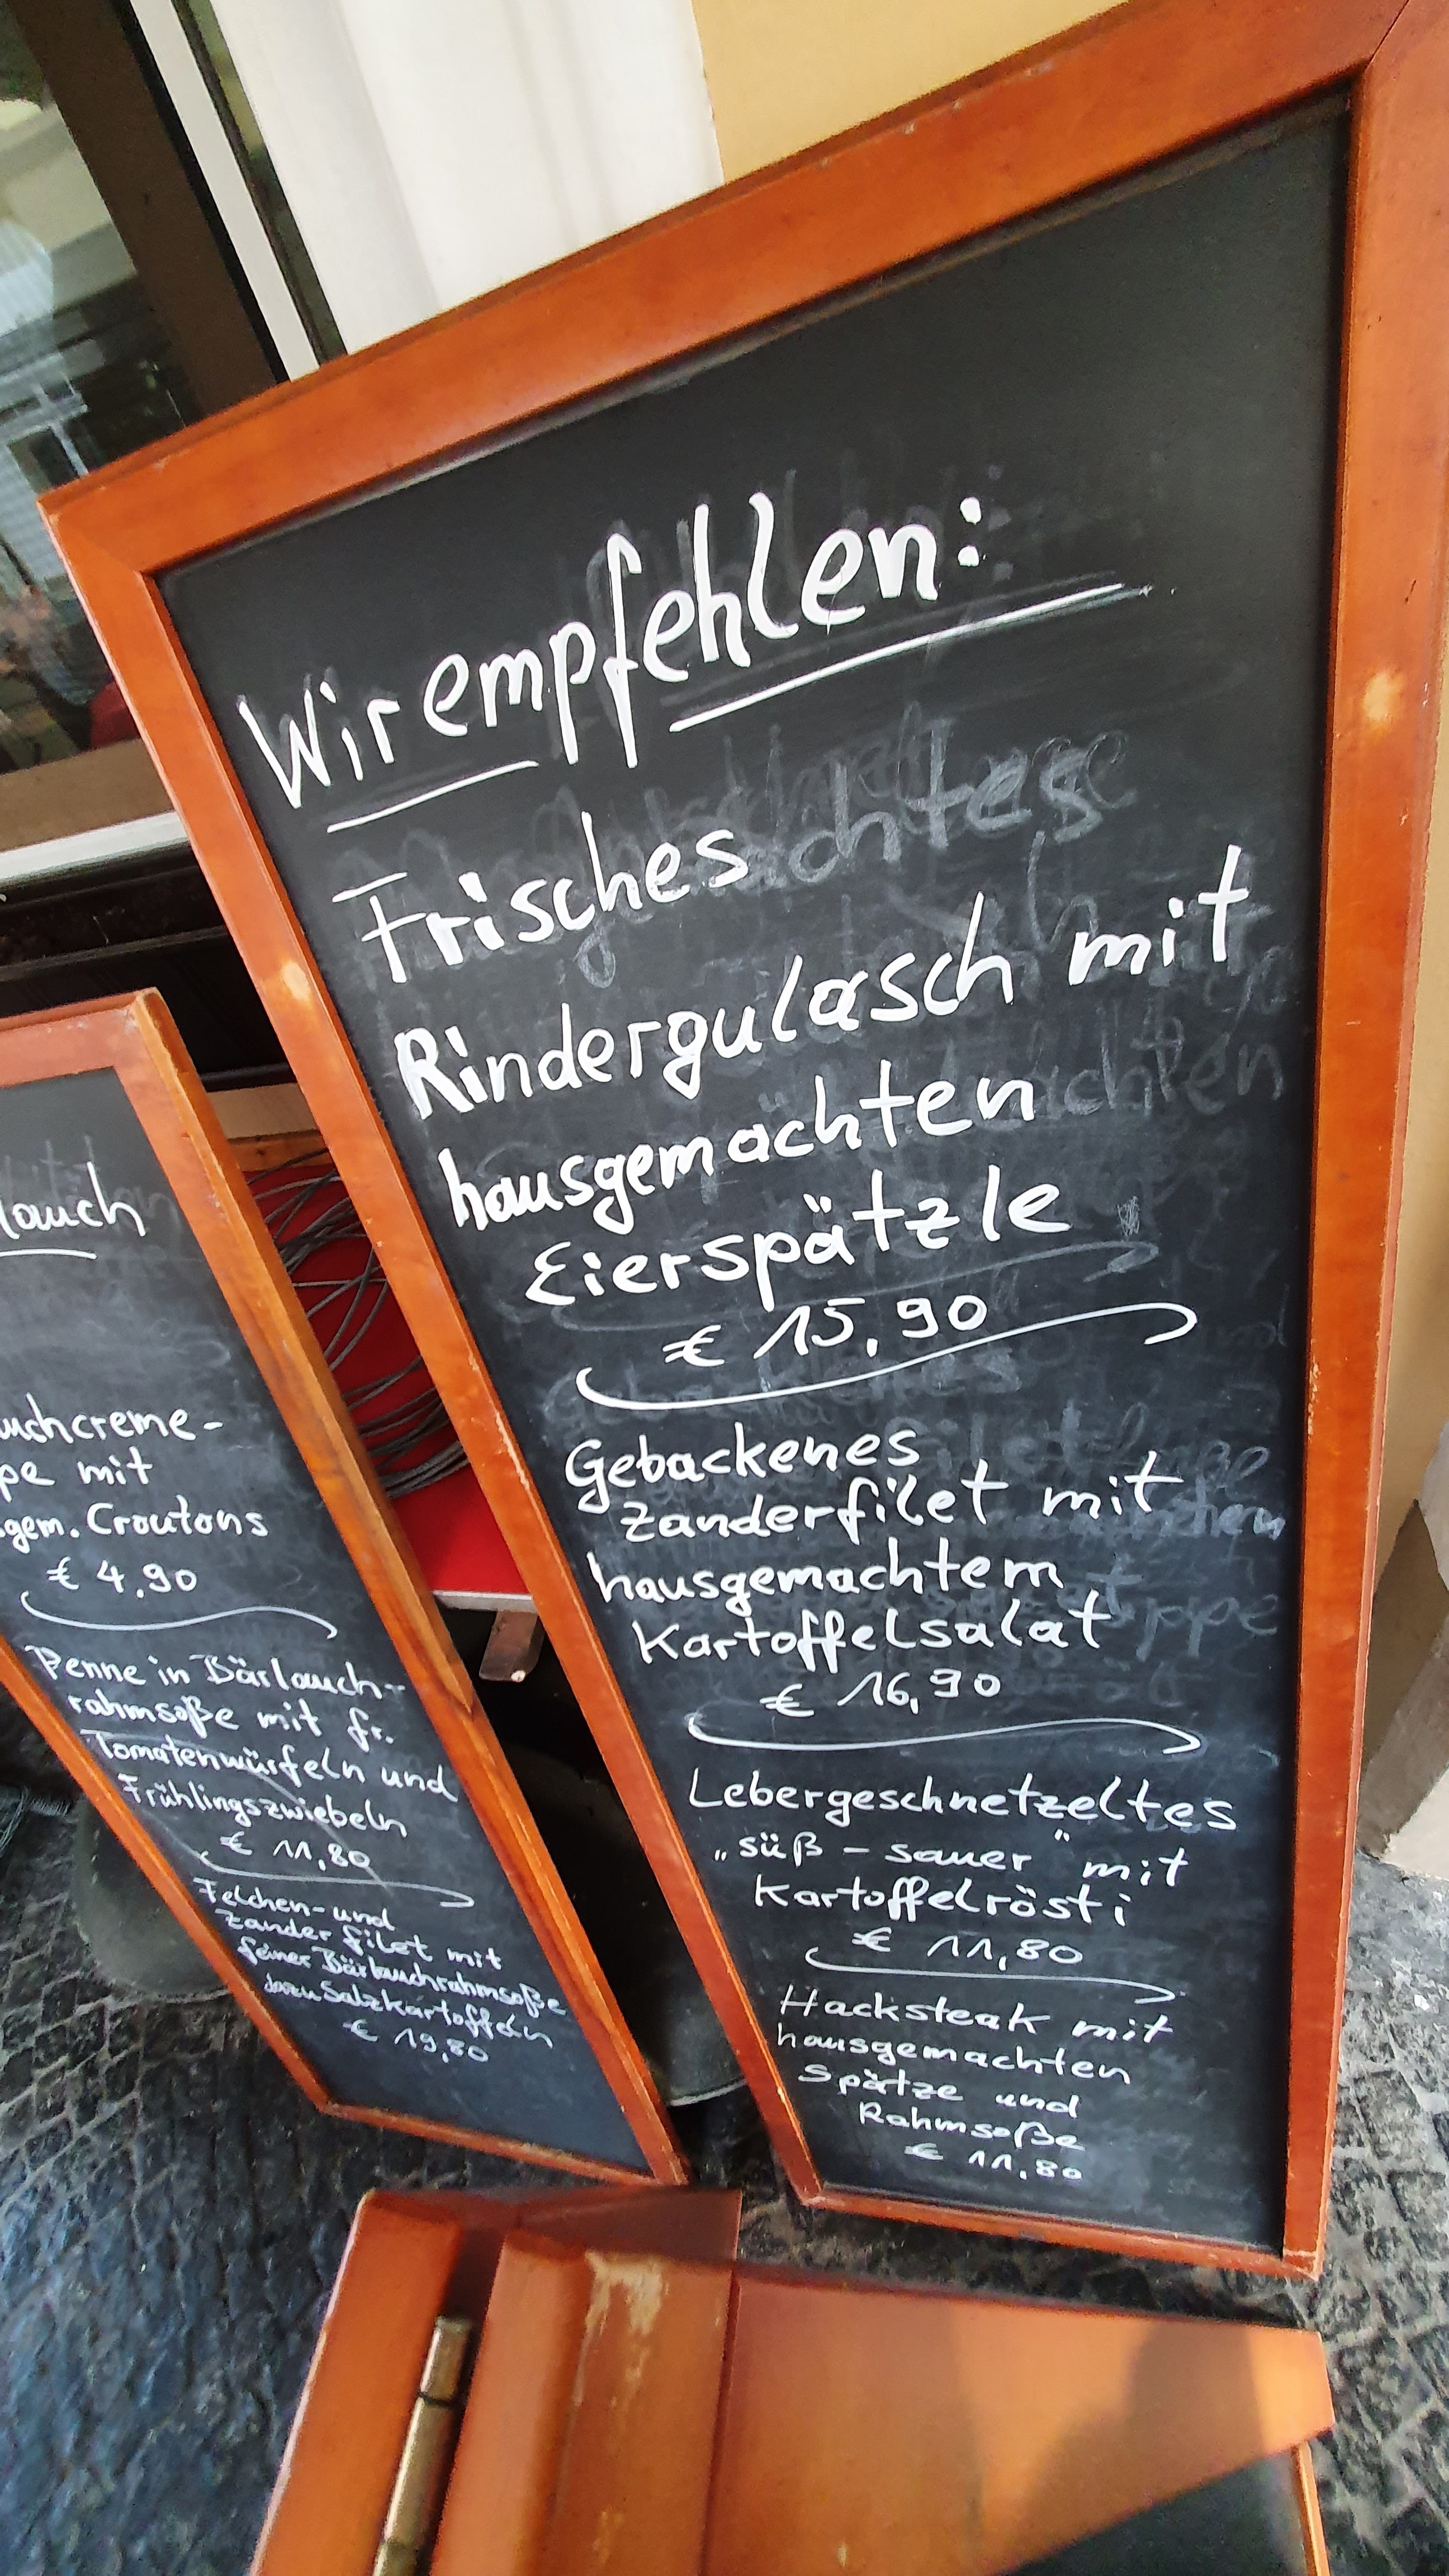 Wir empfehlen:
Frisches
Rindergulasch mit
hausgemachten
Eierspätzle
€ 15,90
Gebackenes
Zanderfilet mit
hausgemachtem
Kartoffelsalat
€ 16,90
Lebergeschnetzeltes
„süß - sauer" mit
Kartoffelrösti
€ 11,80
Hacksteak mit
hausgemachten
Spätze und
Rahmsoße
€ 11,80
lauch
uchcreme-
pe mit
gem. Croutons
€ 4,90
Penne in Bärlauch-
rahmsoße mit fr.
Tomatenwürfeln und
Frühlingszwiebeln
€ 11,80
Felchen- und
Zander filet mit
feiner Bärlauchrahmsoße
dazu Salzkartoffeln
€ 19,80